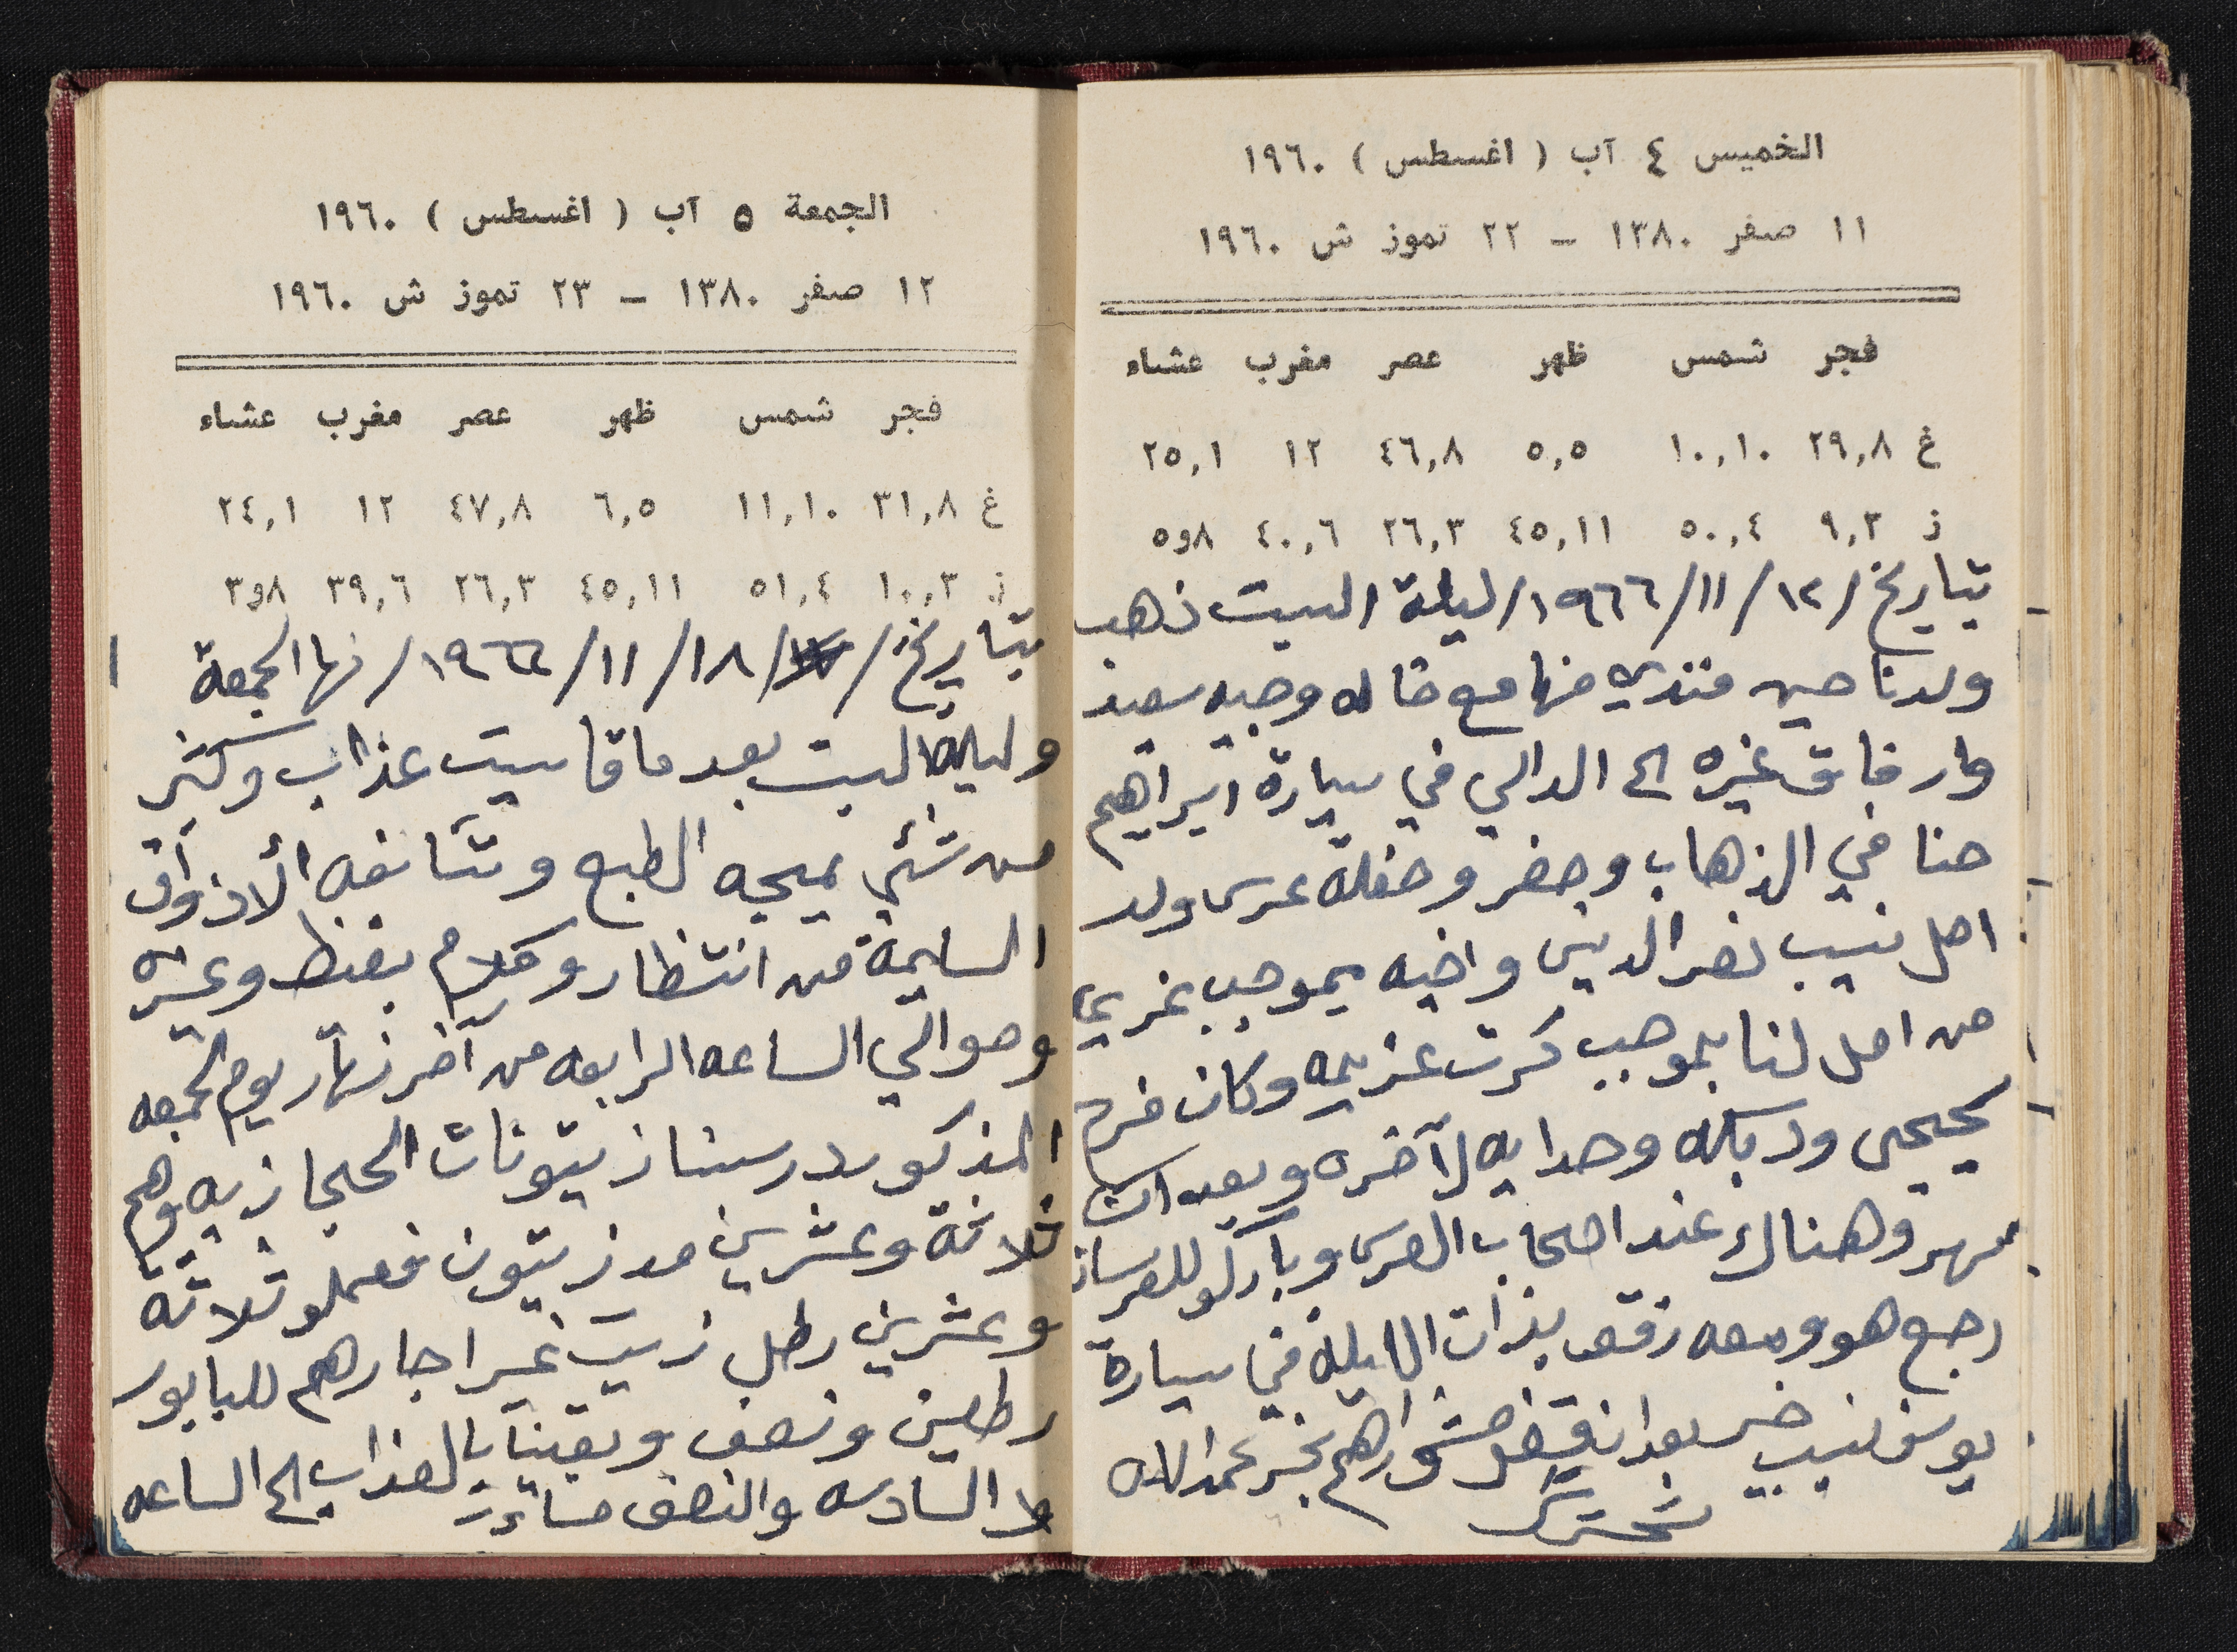 الخميس ٤ آب ( اغسطس ) ١٩٦٠
١١ صفر ١٣٨٠ – ٢٢ تموز ش ١٩٦٠
فجر شمس ظهر عصر مغرب عشاء
غ ٢٩,٨ ١٠,١٠ ٥,٥ ٤٦,٨ ١٢ ٢٥,١
ز ٩,٣ ٥٠,٤ ٤٥,١١ ٢٦,٣ ٤٠,٦ ٨و٥
بتاريخ /١٢/ ١١/ ١٩٦٦/ ليلة السبت ذهب
ولدنا مع خاله وجيه سعيد
غيره الى الدالي في سيارة ابراهيم
حنا في الذهاب وحضرو حفلة عرس ولد
نصر الدين واخيه بموجب
من اهل لنا بموجب كرت عزيمه وكان فرح
ودبكه وحدايه لآخره وبعد ان
سهرو هناك عند اصحاب العرس وباركو للعرسان
رجع هو ومعه رفقه بذات الليلة في سيارة
يوسف نسيب خير بعد مشوارهم بخير بحمد الله
الجمعة ٥ آب ( اغسطس ) ١٩٦٠
١٢ صفر ١٣٨٠ – ٢٣ تموز ش ١٩٦٠
فجر شمس ظهر عصر مغرب عشاء
غ ٣١,٨ ١١,١٠ ٦,٥ ٤٧,٨ ١٢ ٢٤,١
ز ١٠,٣ ٥١,٤ ٤٥,١١ ٢٦,٣ ٣٩,٦ ٨و٣
بتاريخ / ١٨/ ١١/ ١٩٦٦/ نهار الجمعة
وليلة السبت بعد ما قاسيت عذاب وكثير
من شئي يمجه الطبع وتئانفه الأذواق
السليمة من انتظار وكلام بغيظ وغيره
وحوالي الساعه الرابعه من آخر نهار يوم الجمعه
المذكور درسنا زيتونات الحجازيه وهم
ثلاثة وعشرين مد زيتون فعملو ثلاثة
وعشرين رطل زيت غير اجارهم للبابور
رطلين ونصف وبقينا بالعذاب الى الساعه
السادسه والنصف مساءً